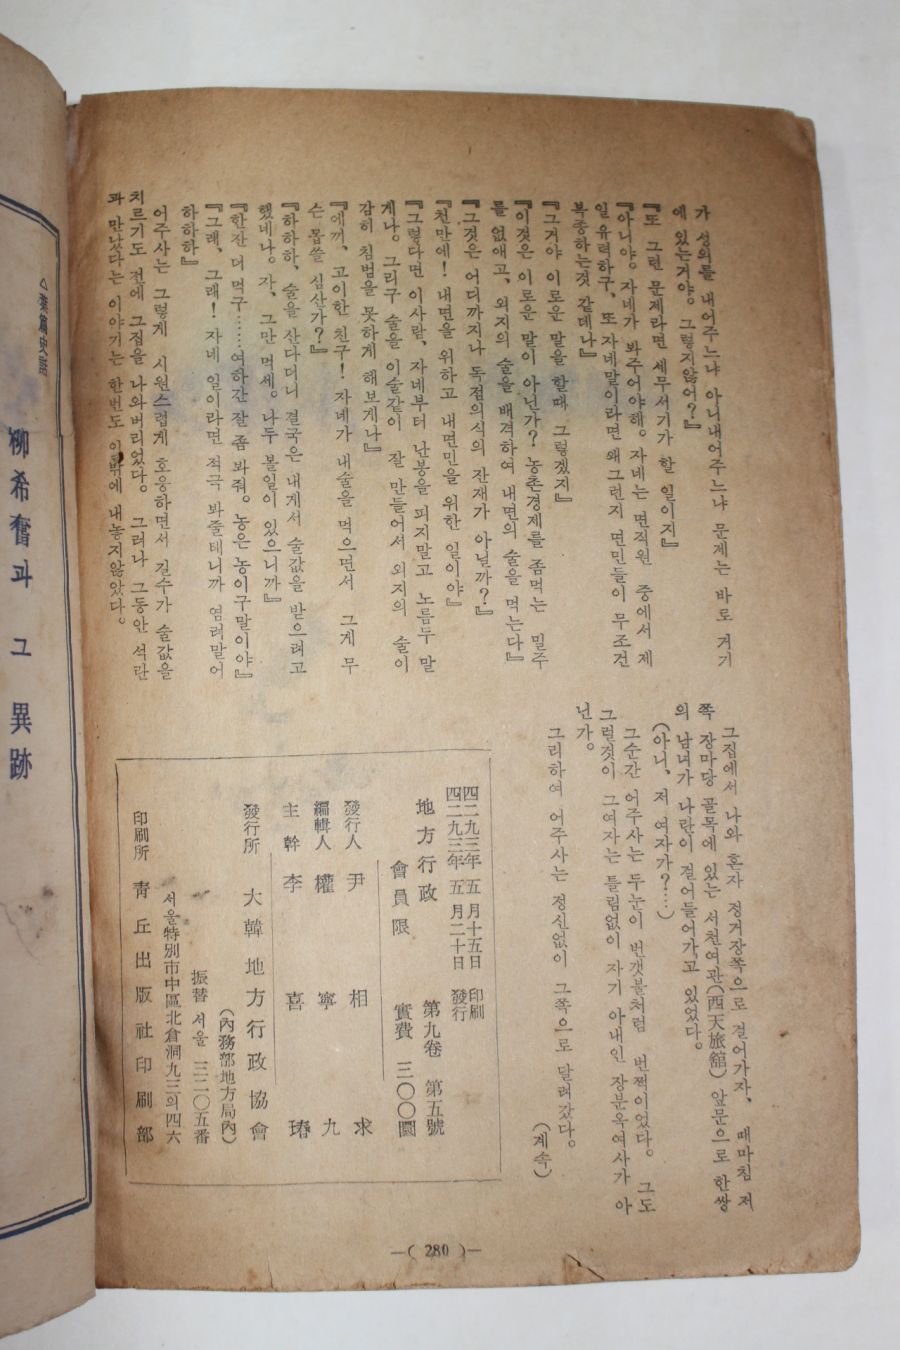 가 성의를 내어주느냐 아니내어주느냐 문제는 바로 거기
에 있는거야. 그렇지않어?』
『또 그런 문제라면 세무서기가 할 일이지』
『아니야. 자네가 봐주어야해. 자네는 면직원 중에서 제
일 유력하구, 또 자네말이라면 왜그런지 면민들이 무조건
복종하는것 같데나』
『그거야 이로운 말을 할때 그렇겠지』
『이것은 이로운 말이 아닌가? 농촌경제를 좀먹는 밀주
를 없애고, 외지의 술을 배격하여 내면의 술을 먹는다』
『그것은 어디까지나 독점의식의 잔재가 아닐까?』
『천만에! 내면을 위하고 내면민을 위한 일이야』
『그렇다면 이사람, 자네부터 난봉을 피지말고 노름두 말
게나. 그리구 술을 이술같이 잘 만들어서 외지의 술이
감히 침범을 못하게 해보게나』
『에끼, 고이한 친구! 자네가 내술을 먹으면서 그게 무
슨 몹쓸 심산가?』
『하하하, 술을 산다더니 결국은 내게서 술값을 받으려고
했네나. 자, 그만 먹세. 나두 볼일이 있으니까』
『한잔 더 먹구……여하간 잘 좀 봐줘. 농은 농이구말이야』
『그래, 그래! 자네 일이라면 적극 봐줄테니까 염려말어
하하하』
어주사는 그렇게 시원스럽게 호응하면서 길수가 술값을
치르기도 전에 그집을 나와버리었다. 그러나 그동안 석란
과 만났다는 이야기는 한번도 입밖에 내놓지않았다.
그집에서 나와 혼자 정거장쪽으로 걸어가자, 때마침 저
쪽 장마당 골목에 있는 서천여관(西天旅舘) 앞문으로 한쌍
의 남녀가 나란이 걸어들어가고 있었다.
(아니, 저 여자가?…)
그순간 어주사는 두눈이 번갯불처럼 번쩍이었다. 그도
그럴것이 그여자는 틀림없이 자기 아내인 장분옥여사가 아
닌가.
그리하여 어주사는 정신없이 그쪽으로 달려갔다.
(계속)
四二九三年 五月十五日 印刷
四二九三年 五月二十日 發行
地方行政 第九卷 第五號
會員限 實費 三〇〇圜
發行人 尹相求
編輯人 權寧九
主幹 李喜瑃
發行所 大韓地方行政協會
(內務部地方局內)
振替 서울 三二〇五番
서울特別市中區北倉洞九三의四六
印刷所 靑丘出版社印刷部
—( 280 )—
△葉篇史話
柳希奮과 그 異跡